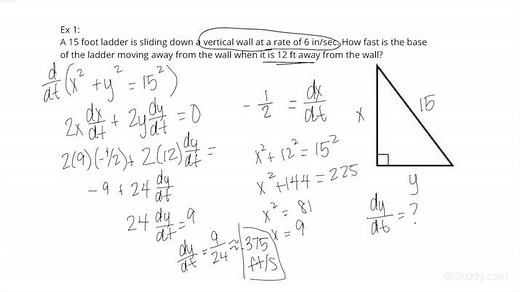 Ex 1:
A 15 foot ladder is sliding down a vertical wall at a rate of 6 in/sec. How fast is the base
of the ladder moving away from the wall when it is 12 ft away from the wall?
d/dt (x² + y² = 15²)
2x dx/dt + 2y dy/dt = 0
2(9)(-1/2) + 2(12) dy/dt =
-9 + 24 dy/dt
24 dy/dt = 9
dy/dt = 9/24 ≈ .375 ft/s
-1/2 = dx/dt
x² + 12² = 15²
x² + 144 = 225
x² = 81
x = 9
x
15
y
dy/dt = ?
Study.com